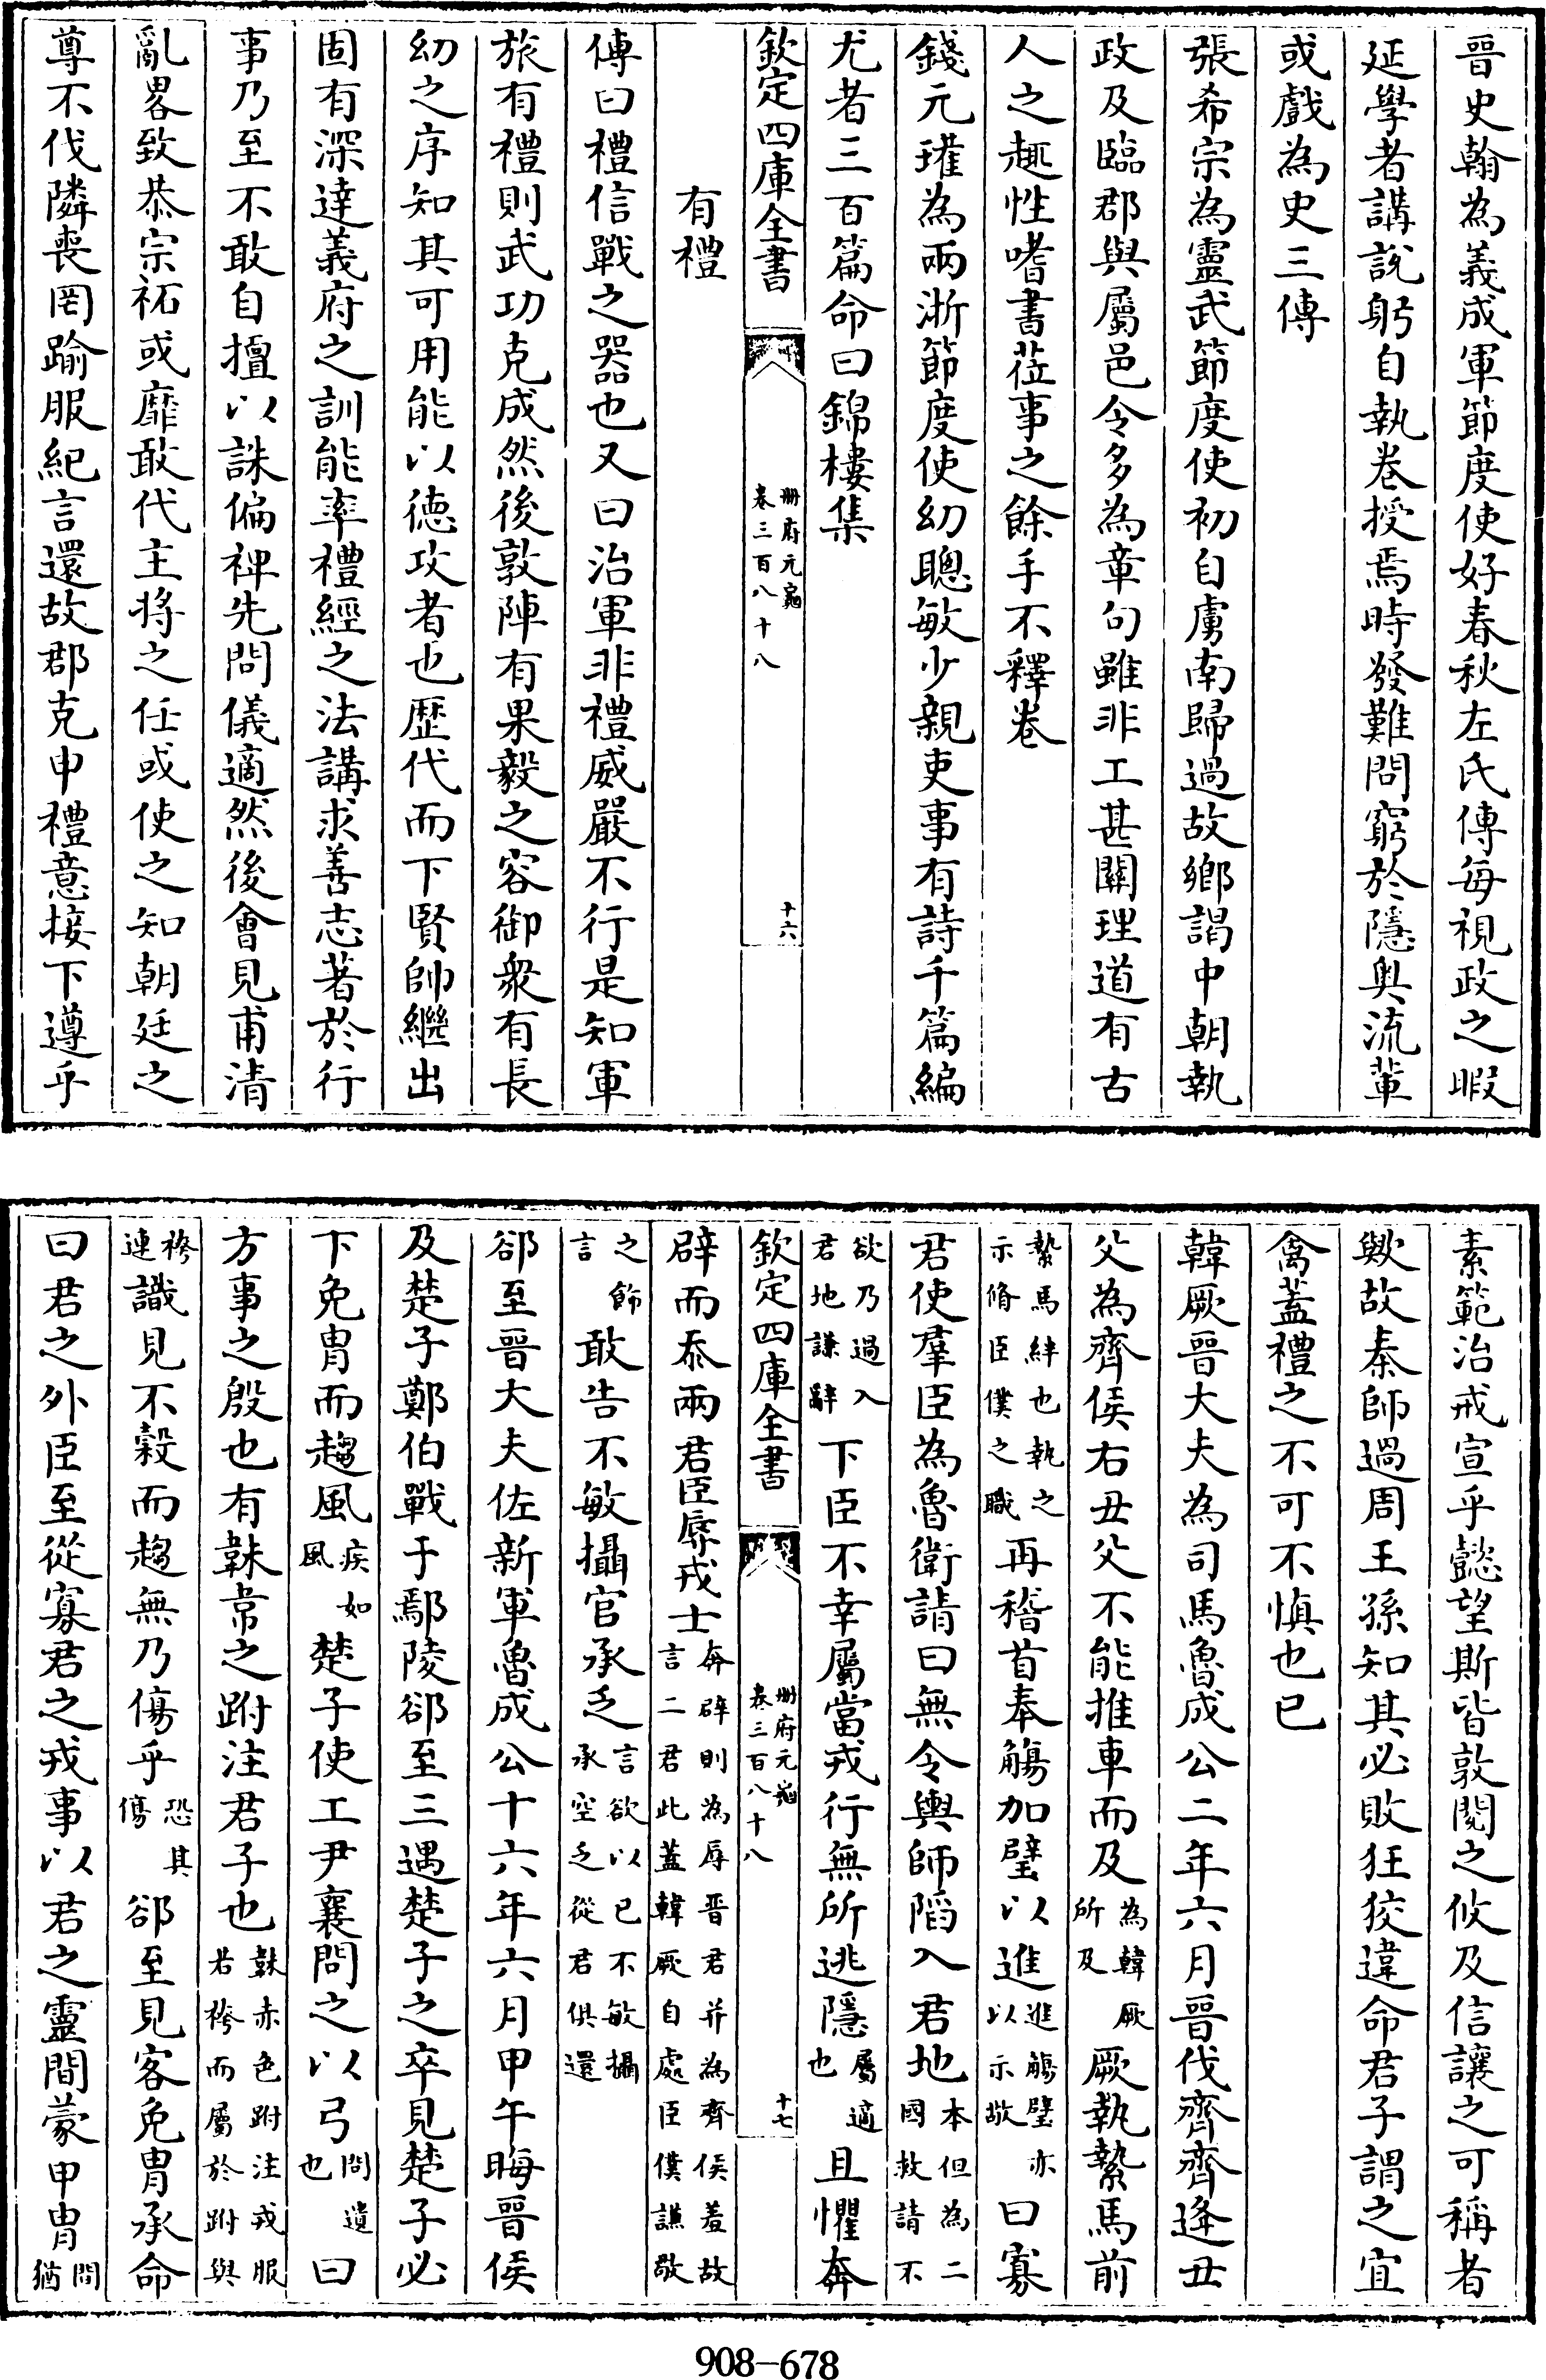 晉史翰為義成軍節度使好春秋左氏傳每視政之暇
延學者講說躬自執卷授焉時發難問窮於隱奥流輩
或戲為史三傳
張希宗為靈武節度使初自虜南歸過故鄉謁中朝執
政及臨郡與屬邑令多為章句雖非工甚關理道有古
人之趣性嗜書莅事之餘手不釋卷
錢元瓘為兩浙節度使幼聰敏少親吏事有詩千篇編
尤者三百篇命曰錦樓集
欽定四庫全書
册府元龜
卷三百八十八
十六
有禮
傳曰禮信戰之器也又曰治軍非禮威嚴不行是知軍
旅有禮則武功克成然後敦陣有果毅之容御衆有長
幼之序知其可用能以德攻者也歴代而下賢帥繼出
固有深達義府之訓能率禮經之法講求善志著於行
事乃至不敢自擅以誅偏裨先問儀適然後會見甫清
亂畧致恭宗祏或靡敢代主將之任或使之知朝廷之
尊不伐隣喪罔踰服紀言還故郡克申禮意接下遵乎
素範治戒宣乎懿望斯皆敦閱之攸及信讓之可稱者
歟故秦師過周王孫知其必敗狂狡違命君子謂之宜
禽蓋禮之不可不慎也已
韓厥晉大夫為司馬魯成公二年六月晉伐齊齊逄丑
父為齊侯右丑父不能推車而及為韓厥所及厥執縶馬前
縶馬絆也執之示脩臣僕之職再稽首奉觴加璧以進進觴璧亦以示敬曰寡
君使羣臣為魯衛請曰無令輿師陷入君地本但為二國救請不
欲乃過入君地謙辭下臣不幸屬當戎行無所逃隱屬適也且懼奔
欽定四庫全書
册府元龜
卷三百八十八
十七
辟而忝兩君臣辱戎士奔辟則為辱晉君并為齊侯羞故言二君此蓋韓厥自處臣僕謙敬
之飾言敢告不敏攝官承乏言欲以已不敏攝承空乏從君俱還
郤至晉大夫佐新軍魯成公十六年六月甲午晦晉侯
及楚子鄭伯戰于鄢陵郤至三遇楚子之卒見楚子必
下免胄而趨風疾如風楚子使工尹襄問之以弓問遺也曰
方事之殷也有韎韋之跗注君子也韎赤色跗注戎服若袴而屬於跗與
袴連識見不穀而趨無乃傷乎恐其傷郤至見客免胄承命
曰君之外臣至從寡君之戎事以君之靈間蒙甲胄間猶
908-678